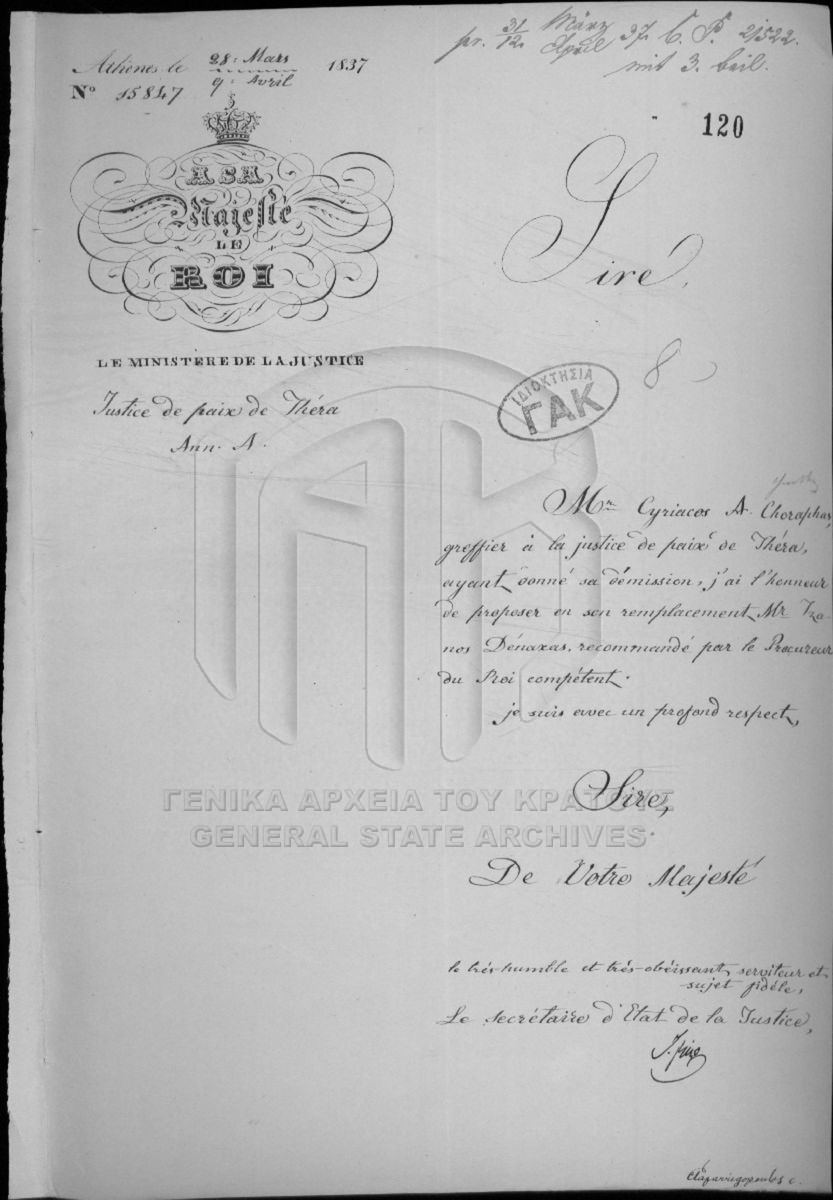 pr. 31/12. März/April 37. C. P. 21522.
mit 3. beil.
Athènes le 28: Mars / 9: Avril 1837
No 15847
120
A SA
Majesté
LE
ROI
Sire,
LE MINISTÈRE DE LA JUSTICE
8
ΙΔΙΟΚΤΗΣΙΑ
ΓΑΚ
Justice de paix de Théra
Ann. A.
Mr. Cyriacos A. Choraphas,
greffier à la justice de paix de Théra,
ayant donné sa démission, j'ai l'honneur
de proposer en son remplacement Mr Tza-
nos Dénaxas, recommandé par le Procureur
du Roi compétent.
je suis avec un profond respect,
Sire,
ΓΕΝΙΚΑ ΑΡΧΕΙΑ ΤΟΥ ΚΡΑΤΟΥΣ
GENERAL STATE ARCHIVES
De Votre Majesté
le très-humble et très-obéissant serviteur et
sujet fidèle,
Le secrétaire d'Etat de la Justice,